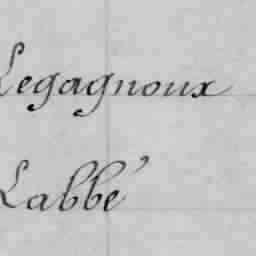 Legagnoux
Labbé